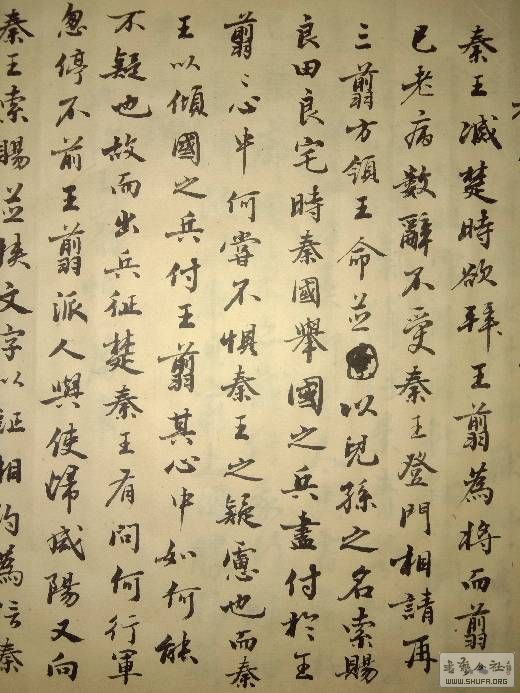 秦王滅楚時欲拜王翦為將而翦
已老病數辭不受秦王登門相請再
三翦方領王命並以兒孫之名索賜
良田良宅時秦國舉國之兵盡付於王
翦翦心中何嘗不懼秦王之疑慮也而秦
王以傾國之兵付王翦其心中如何能
不疑也故而出兵征楚秦王有問何行軍
忽停不前王翦派人與使歸咸陽又向
秦王索賜並挟文字以証相約為信秦
書藝公社
WWW.SHUFA.ORG